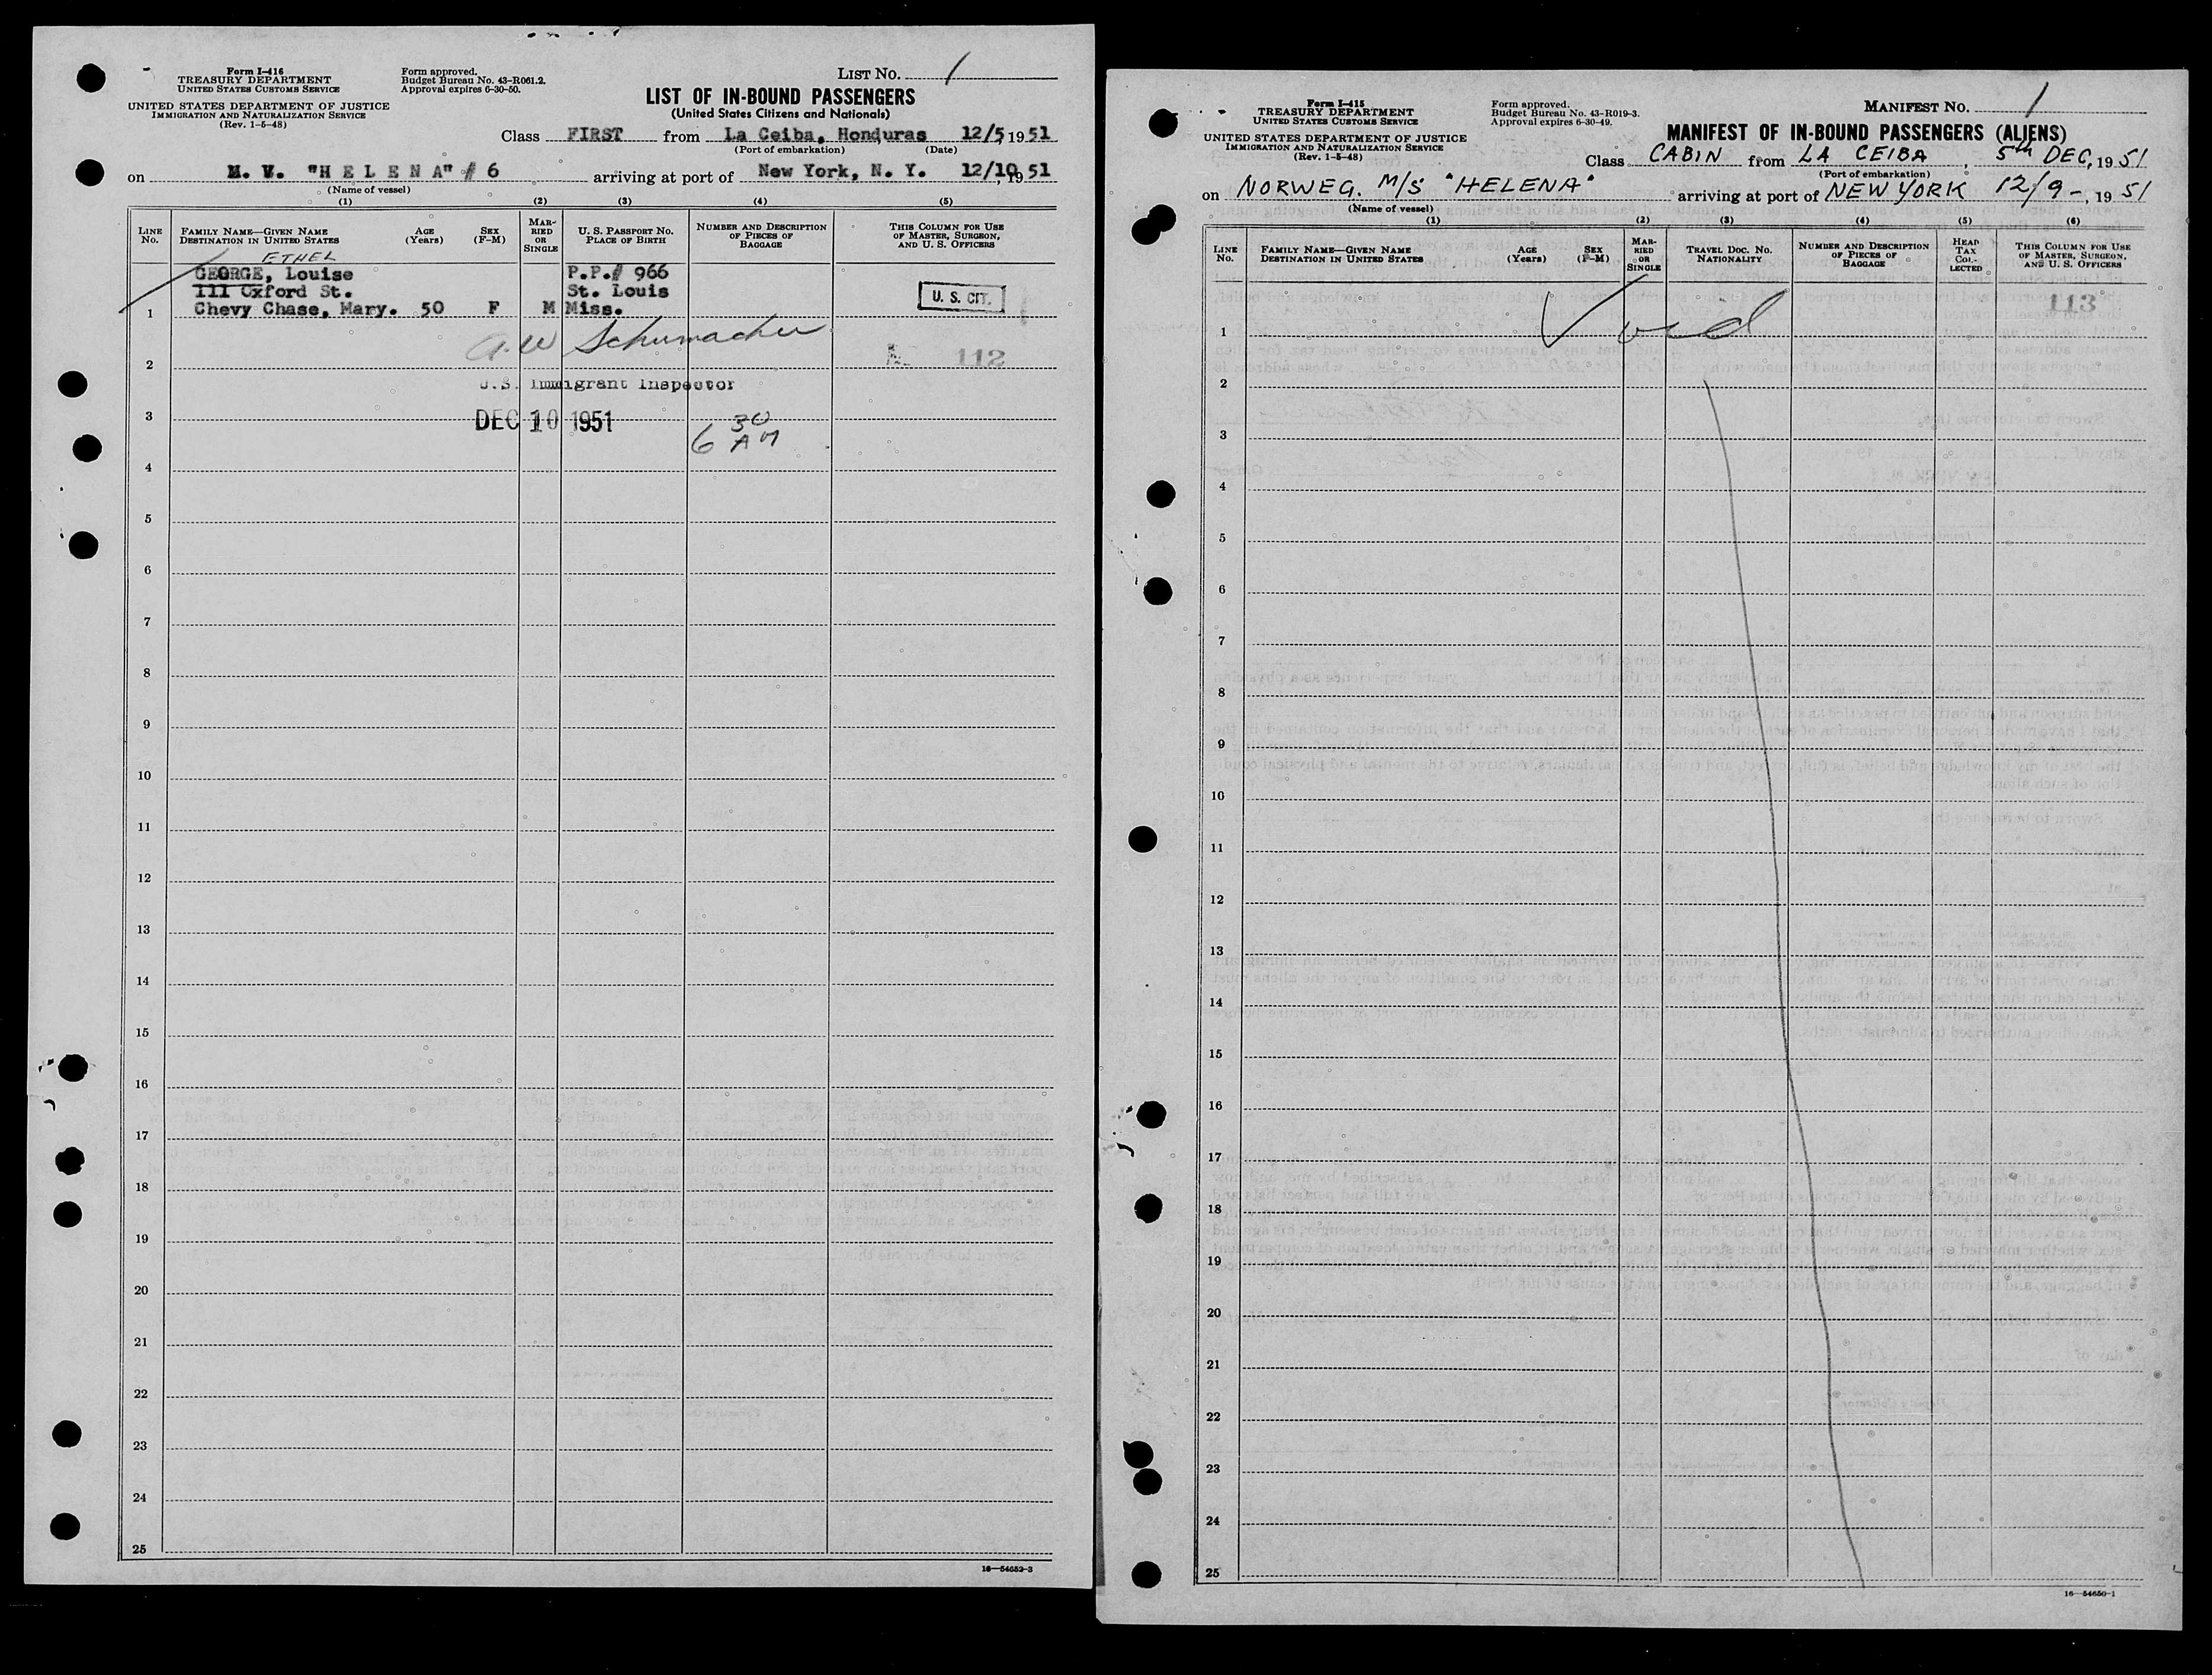 Form I-416
TREASURY DEPARTMENT
UNITED STATES CUSTOMS SERVICE
UNITED STATES DEPARTMENT OF JUSTICE
IMMIGRATION AND NATURALIZATION SERVICE
(Rev. 1-5-48)
Form approved.
Budget Bureau No. 43-R061.2.
Approval expires 6-30-50.
LIST NO. 1
LIST OF IN-BOUND PASSENGERS
(United States Citizens and Nationals)
Class FIRST from La Ceiba, Honduras 12/5, 1951
(Port of embarkation) (Date)
on M. V. "H E L E N A" # 6 arriving at port of New York, N. Y. 12/10, 1951
(Name of vessel)
(1) (2) (3) (4) (5)
LINE NO.
FAMILY NAME—GIVEN NAME
DESTINATION IN UNITED STATES
AGE (Years)
SEX (F-M)
MARRIED OR SINGLE
U. S. PASSPORT NO.
PLACE OF BIRTH
NUMBER AND DESCRIPTION OF PIECES OF BAGGAGE
THIS COLUMN FOR USE OF MASTER, SURGEON, AND U. S. OFFICERS
ETHEL
GEORGE, Louise P.P.# 966
111 Oxford St. St. Louis
1 Chevy Chase, Mary. 50 F M Miss. U. S. CIT.
A. W Schumacher
2 112
U.S. Immigrant Inspector
3 DEC 10 1951 6 30 AM
4
5
6
7
8
9
10
11
12
13
14
15
16
17
18
19
20
21
22
23
24
25
16—54652-3
Form I-415
TREASURY DEPARTMENT
UNITED STATES CUSTOMS SERVICE
UNITED STATES DEPARTMENT OF JUSTICE
IMMIGRATION AND NATURALIZATION SERVICE
(Rev. 1-5-48)
Form approved.
Budget Bureau No. 43-R019-3.
Approval expires 6-30-49.
MANIFEST NO. 1
MANIFEST OF IN-BOUND PASSENGERS (ALIENS)
Class CABIN from LA CEIBA, 5th DEC, 1951
(Port of embarkation)
on NORWEG. M/S "HELENA" arriving at port of NEW YORK 12/9-, 1951
(Name of vessel)
(1) (2) (3) (4) (5) (6)
LINE NO.
FAMILY NAME—GIVEN NAME
DESTINATION IN UNITED STATES
AGE (Years)
SEX (F-M)
MARRIED OR SINGLE
TRAVEL DOC. NO.
NATIONALITY
NUMBER AND DESCRIPTION OF PIECES OF BAGGAGE
HEAD TAX COLLECTED
THIS COLUMN FOR USE OF MASTER, SURGEON, AND U. S. OFFICERS
113
1 Void
2
3
4
5
6
7
8
9
10
11
12
13
14
15
16
17
18
19
20
21
22
23
24
25
16—54650-1